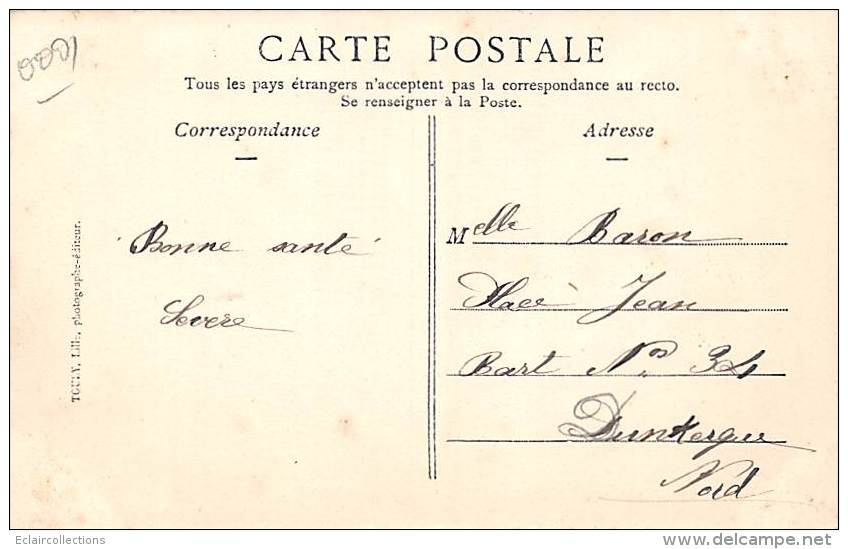 CARTE POSTALE
Tous les pays étrangers n'acceptent pas la correspondance au recto.
Se renseigner à la Poste.
Correspondance
Adresse
Bonne santé
Severe
Melle Baron
Place Jean
Bart Nos 34
Dunkerque
Nord
Lille, photographe-éditeur.
Eclaircollections
delcampe.net